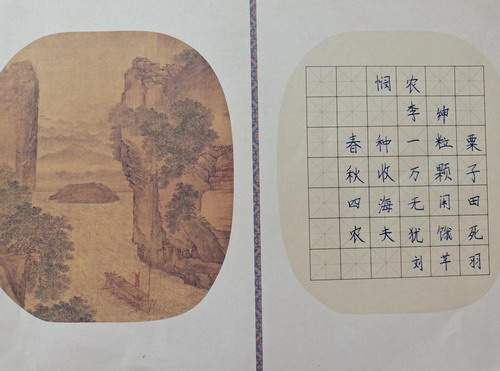 悯农
李绅
春种一粒粟
秋收万颗子
四海无闲田
农夫犹饿死
刘芊羽